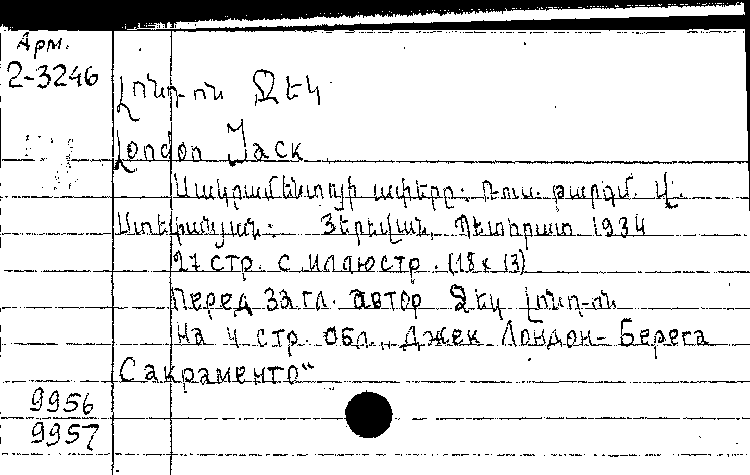 Арм.
2-3246
Լոնդոն Ջեկ
London Jack
Սակրամենտոյի ափերը: Ռուս. թարգմ. Վ.
Ստեփանյան: Յերեվան, Պետհրատ 1934
27 стр. с иллюстр. (18 x 13)
Перед загл. автор Ջեկ Լոնդոն
На 4 стр. обл. „Джек Лондон- Берега
Сакраменто“
9956
9957